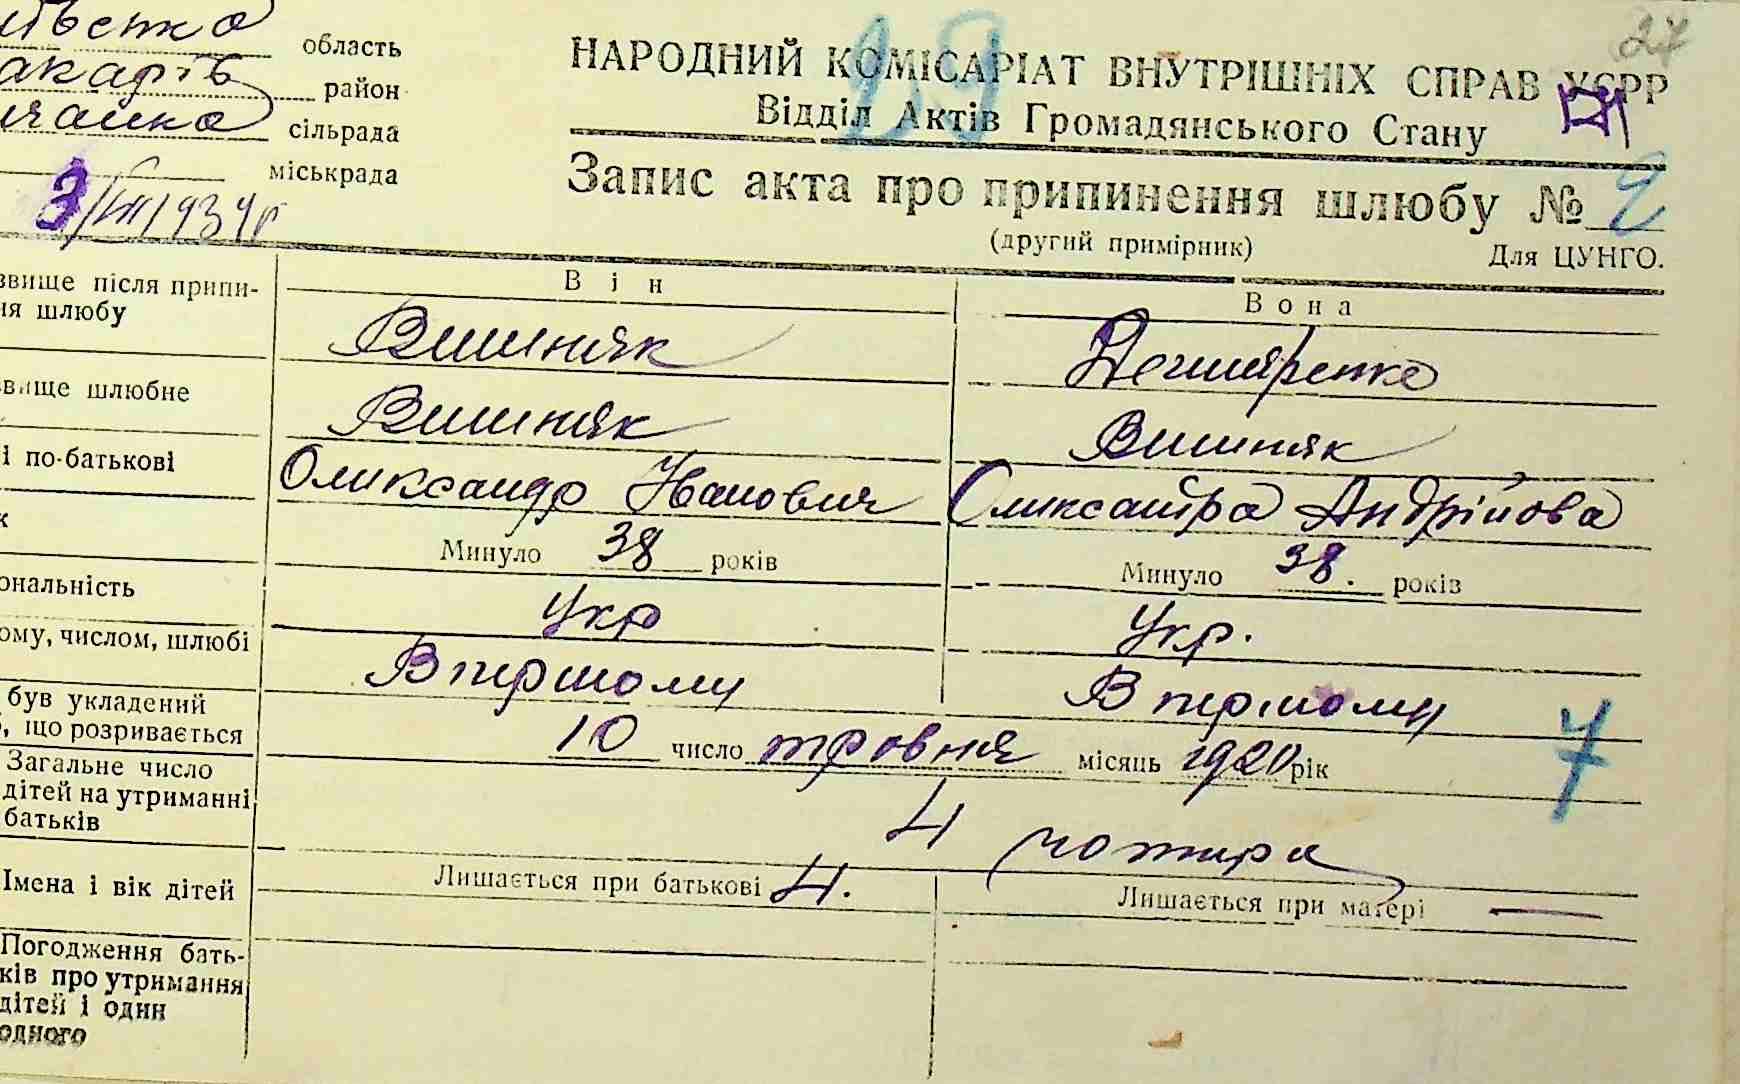 область
район
сільрада
міськрада
3/VIII 1934 р
27
19
НАРОДНИЙ КОМІСАРІАТ ВНУТРІШНІХ СПРАВ УСРР
Відділ Актів Громадянського Стану
Запис акта про припинення шлюбу № 2
(другий примірник) Для ЦУНГО.
Він Вона
звище після припи-
ня шлюбу
Вишняк Дегтяренко
звище шлюбне
Вишняк Вишняк
і по-батькові
Оликсандр Иванович Оликсандра Андрійова
к
Минуло 38 років Минуло 38. років
ональність
Укр Укр.
ому, числом, шлюбі
В першому В першому
був укладений
, що розривається
10 число травня місяць 1920 рік
7
Загальне число
дітей на утриманні
батьків
4 чотира
Імена і вік дітей
Лишається при батькові 4. Лишається при матері —
Погодження бать-
ків про утримання
дітей і один
одного